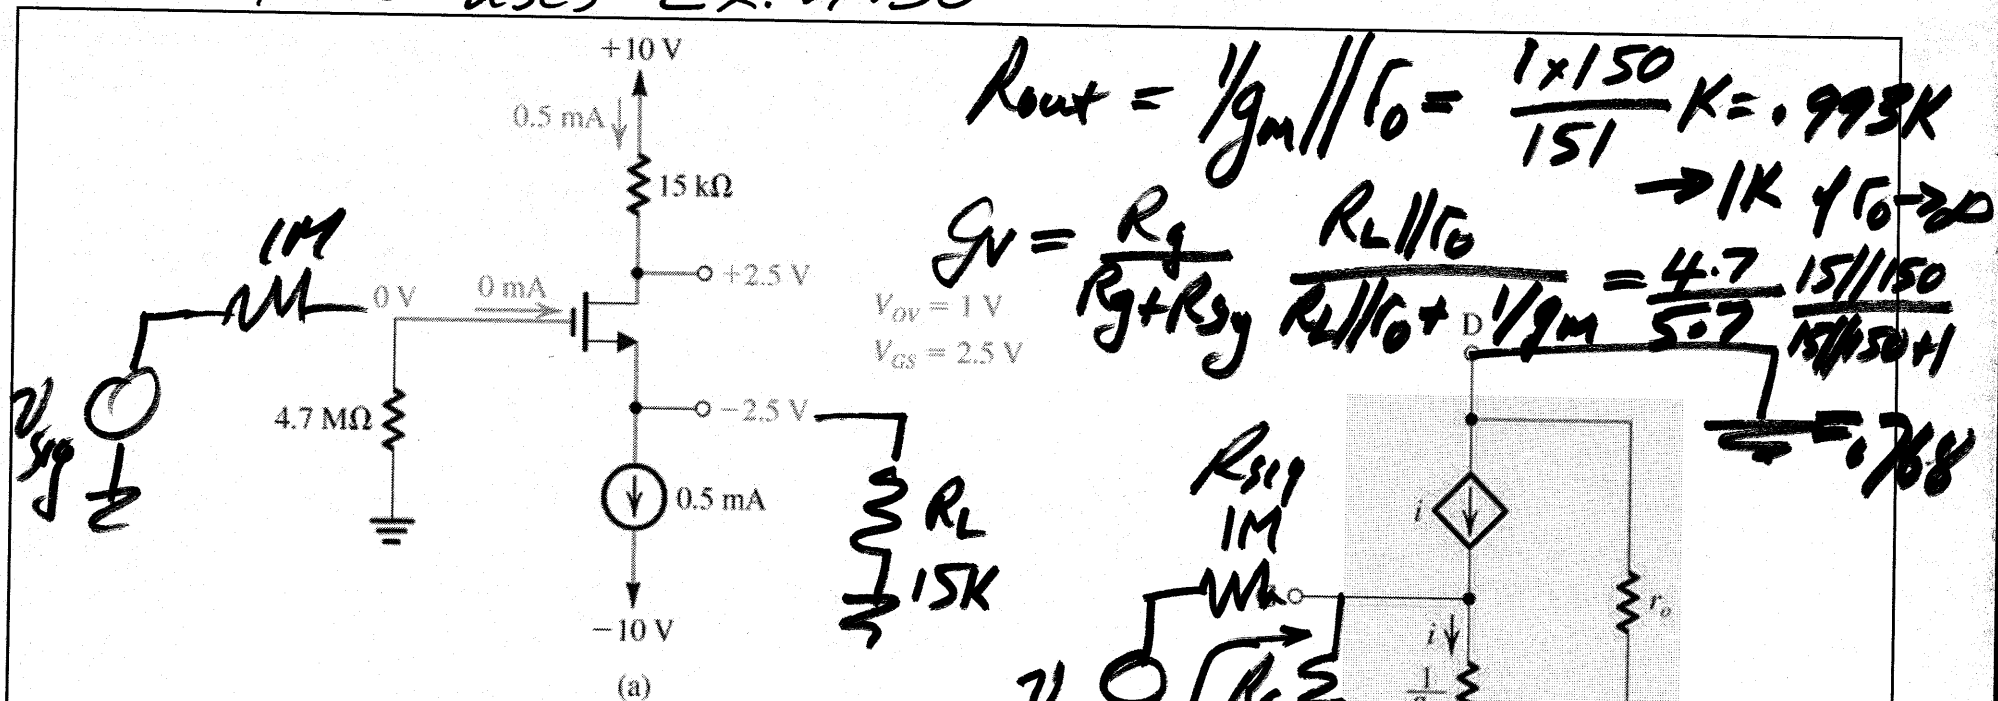 uses Ex. 4.30
+10 V
0.5 mA
15 kΩ
1M
0 V
0 mA
+2.5 V
V_OV = 1 V
V_GS = 2.5 V
4.7 MΩ
−2.5 V
v sig
0.5 mA
R_L
15K
−10 V
(a)
Rout = 1/gm // ro = 1x150 / 151 K = .993K
→ 1K if ro → ∞
Gv = Rg / Rg+Rsig RL//ro / RL//ro + 1/gm = 4.7 / 5.7 15//150 / 15//150 +1
= .768
D
Rsig
1M
i
r_o
i
1
v